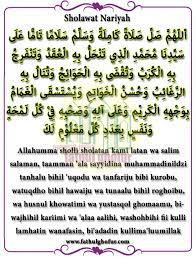 Sholawat Nariyah
اَللّٰهُمَّ صَلِّ صَلَاةً كَامِلَةً وَسَلِّمْ سَلَامًا تَامًّا عَلَى
سَيِّدِنَا مُحَمَّدٍ الَّذِي تَنْحَلُّ بِهِ الْعُقَدُ وَتَنْفَرِجُ
بِهِ الْكُرَبُ وَتُقْضَى بِهِ الْحَوَائِجُ وَتُنَالُ بِهِ
الرَّغَائِبُ وَحُسْنُ الْخَوَاتِمِ وَيُسْتَسْقَى الْغَمَامُ
بِوَجْهِهِ الْكَرِيْمِ وَعَلَى آلِهِ وَصَحْبِهِ فِي كُلِّ لَمْحَةٍ
وَنَفَسٍ بِعَدَدِ كُلِّ مَعْلُوْمٍ لَكَ
Allahumma sholli sholatan kamilatan wa salim
salaman, taamman 'ala sayyidina muhammadinildzi
tanhalu bihil 'uqodu wa tanfariju bibi kurobu,
watuqdho bihil hawaiju wa tunaalu bihil roghoibu,
wa husnul khowatimi wa yustasqol ghomaamu, bi-
wajhihil kariimi wa 'alaa aalihi, washohbihi fii kulli
lamhatin wanafasin, bi'adadin kullima'luumillak
www.fathulghofur.com